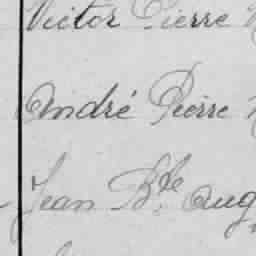 Victor Pierre
André Pierre
Jean Bte Aug